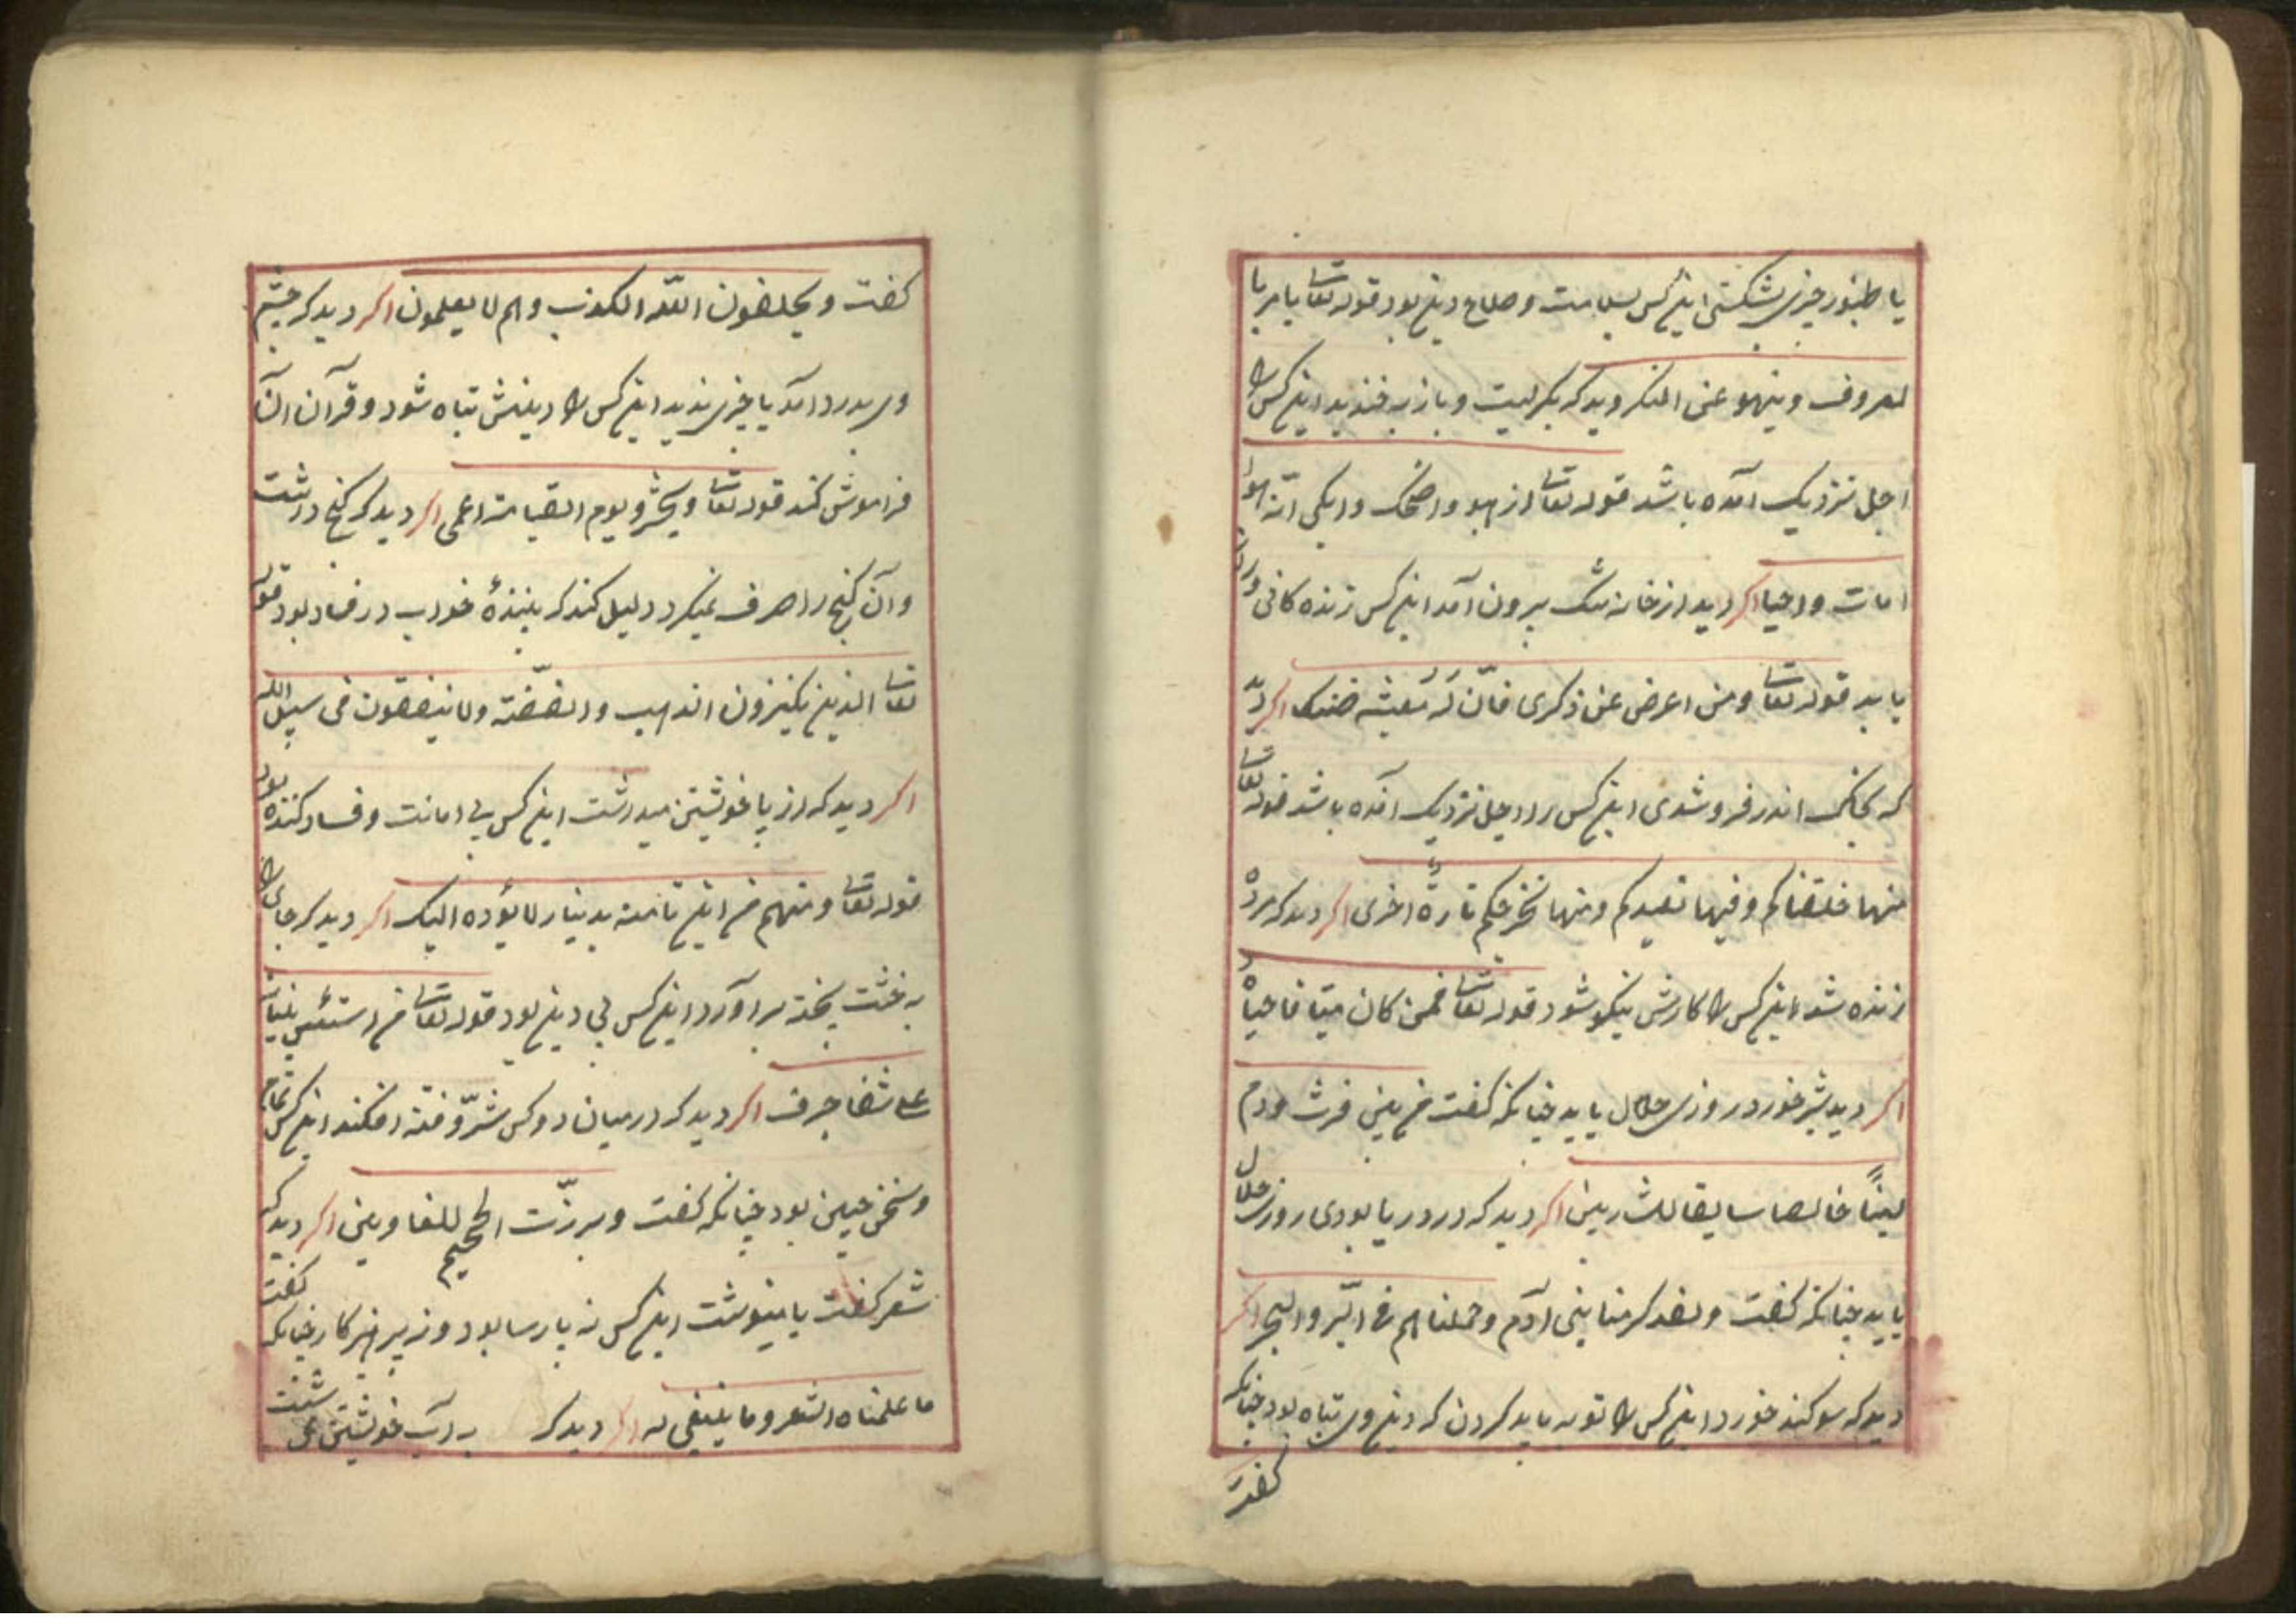 یا طنبور چیزی بشکستی این کس بسلامت و صلاح دین بود قوله تعا یامر با
لمعروف و ینهو عن المنکر دید که بکریست و باز به خندید این کس را
اجل نزدیک آمده باشد قوله تعا از هو واضحک وابکی انّه هوا
امات واحیا اکر دید از خانه تنک بیرون آمد این کس زنده کانی
یابد قوله تعا ومن اعرض عن ذکری فانّ له معیشه ضنک اکر دید
که بخاک اندر فرو شدی این کس را اجل نزدیک آمده باشد قوله تعا
منها خلقناکم و فیها نعیدکم و منها نخرجکم تارةً اخری اکر دید که مرده
زنده شد این کس را کارش نیکو شود قوله تعا فمن کان میتا فاحیاه
اکر دید شیر خورد روزی حلال یابد چنانکه کفت من بین فرث ودم
لبناً خالصا سایقا للشاربین اکر دید که در دریا بودی روزی حلال
یابد چنانکه کفت ولقد کرمنا بنی آدم وحملناهم فی البّر والبحر اکر
دید که سوکند خورد این کس را توبه باید کردن که دین وی تباه بود چنانکه
کفت
کفت ویحلفون اللّه الکذب وهم لا یعلمون اکر دید که چشم
وی بدرد آمد یا چیزی ندید این کس را دینش تباه شود و قرآن
فراموش کند قوله تعا ویحشر و یوم القیامة اعمی اکر دید که کنج داشت
وآن کنج را صرف نمیکرد دلیل کند که بینندهٔ خواب در فساد بود قوله
تعا الذین یکنزون الذهب والفضّة ولا ینفقون فی سبیل الله
اکر دید که از پا خویشتن میداشت این کس بی امانت و فساد کننده بود
قوله تعا ومنهم من این تامنه بدینار لا یؤده الیک اکر دید که جای را
به خشت پخته براورد این کس بی دین بود قوله تعا من استئسس بنیانه
علی شفا جرف اکر دید که در میان دو کس شرّ و فتنه افکند این کس نمّام
وسخن چین بود چنانکه کفت وبرزّت الجحیم للغاوین اکر دید که
شعر کفت یا مینوشت این کس نه پارسا بود و نه پرهیزکار چنانکه کفت
ما علمناه الشعر وما ینبغی له اکر دید که به آب خویشتن می شست